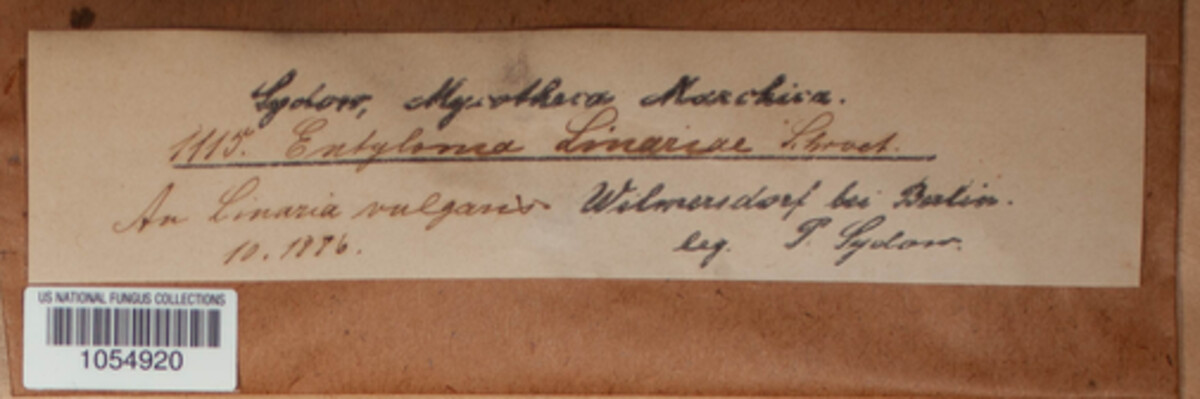 Sydow, Mycotheca Marchica.
1115. Entyloma Linariae Schroet.
An Linaria vulgaris Wilmersdorf bei Berlin.
10. 1886. leg. P. Sydow.
US NATIONAL FUNGUS COLLECTIONS
1054920